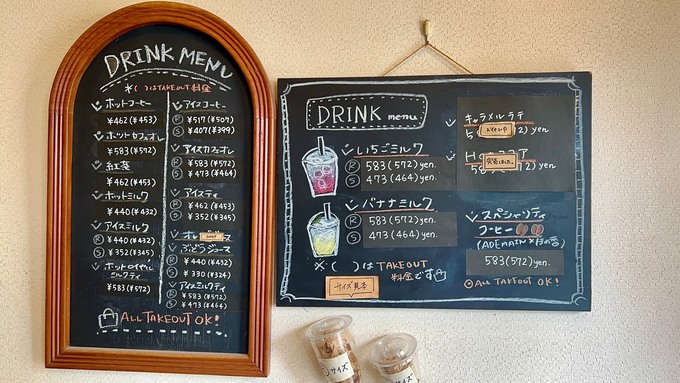 DRINK MENU
*( )はTAKEOUT料金
ホットコーヒー
¥462(¥453)
ホットカフェオレ
¥583(¥572)
紅茶
¥462(¥453)
ホットミルク
¥440(¥432)
アイスミルク
R ¥440(¥432)
S ¥352(¥345)
ホットロイヤル
ミルクティ
¥583(¥572)
アイスコーヒー
R ¥517(¥507)
S ¥407(¥399)
アイスカフェオレ
R ¥583(¥572)
S ¥473(¥464)
アイスティ
R ¥462(¥453)
S ¥352(¥345)
オレ ース
ぶどうジュース
R ¥440(¥432)
S ¥330(¥324)
アイスミルクティ
R ¥583(¥572)
S ¥473(¥464)
ALL TAKEOUT OK!
DRINK menu
いちごミルク
R 583(572)yen.
S 473(464)yen.
バナナミルク
R 583(572)yen.
S 473(464)yen.
※( )はTAKEOUT
料金です
サイズ見本
キャラメルラテ
5 2)yen
コア
2)yen
スペシャリティ
コーヒー
583(572)yen.
ALL TAKEOUT OK!
サイズ
サイズ